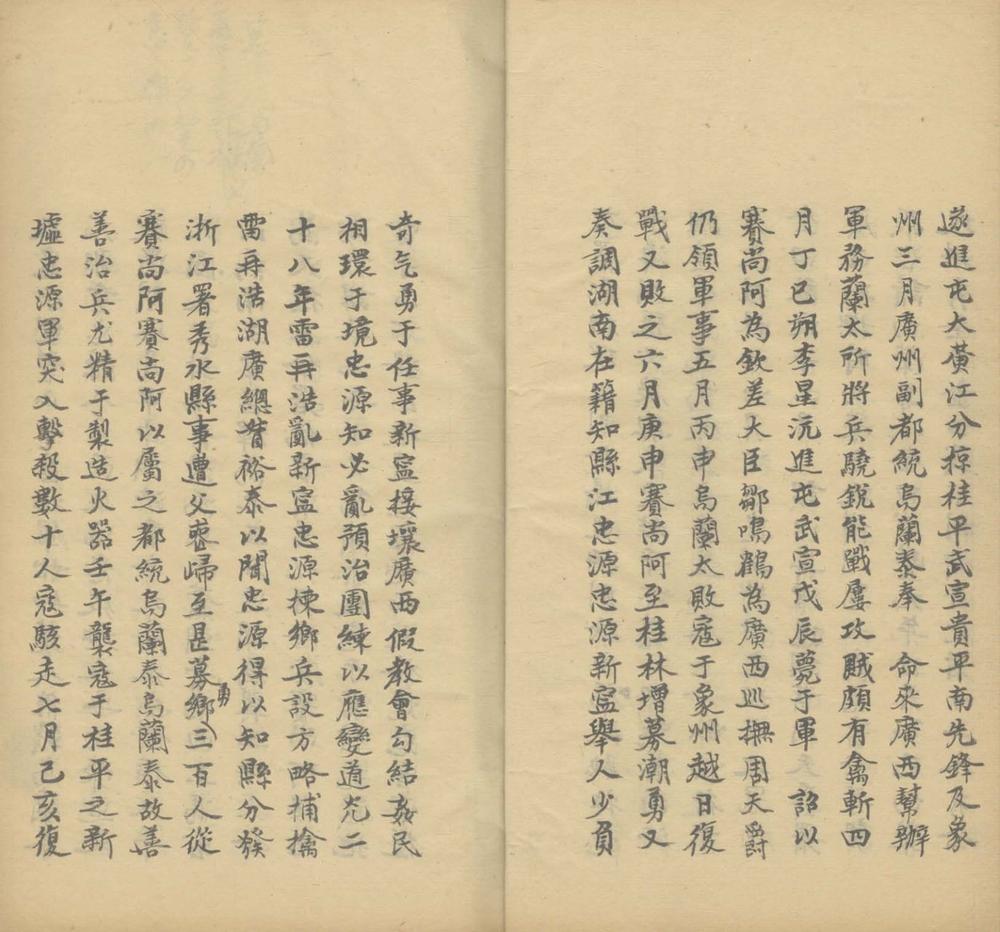 遂進屯大黃江分掠桂平武宣貴平南先鋒及象
州三月廣州副都統烏蘭泰奉 命來廣西幫辦
軍務蘭太所將兵驍銳能戰屢攻賊頗有禽斬四
月丁巳朔李星沅進屯武宣戊辰薨于軍 詔以
賽尚阿為欽差大臣鄒鳴鶴為廣西巡撫周天爵
仍領軍事五月丙申烏蘭太敗寇于象州越日復
戰又敗之六月庚申賽尚阿至桂林增募潮勇又
奏調湖南在籍知縣江忠源忠源新寍舉人少負
奇气勇于任事新寍接壤廣西假教會勾結姦民
相環于境忠源知必亂預治團練以應變道光二
十八年雷再浩亂新寍忠源棟鄉兵設方略捕擒
雷再浩湖廣緫督裕泰以聞忠源得以知縣分發
浙江署秀水縣事遭父喪歸至是募鄉勇三百人從
賽尚阿賽尚阿以屬之都統烏蘭泰烏蘭泰故善
善治兵尤精于製造火器壬午襲寇于桂平之新
墟忠源軍突入擊殺數十人寇駭走七月己亥復